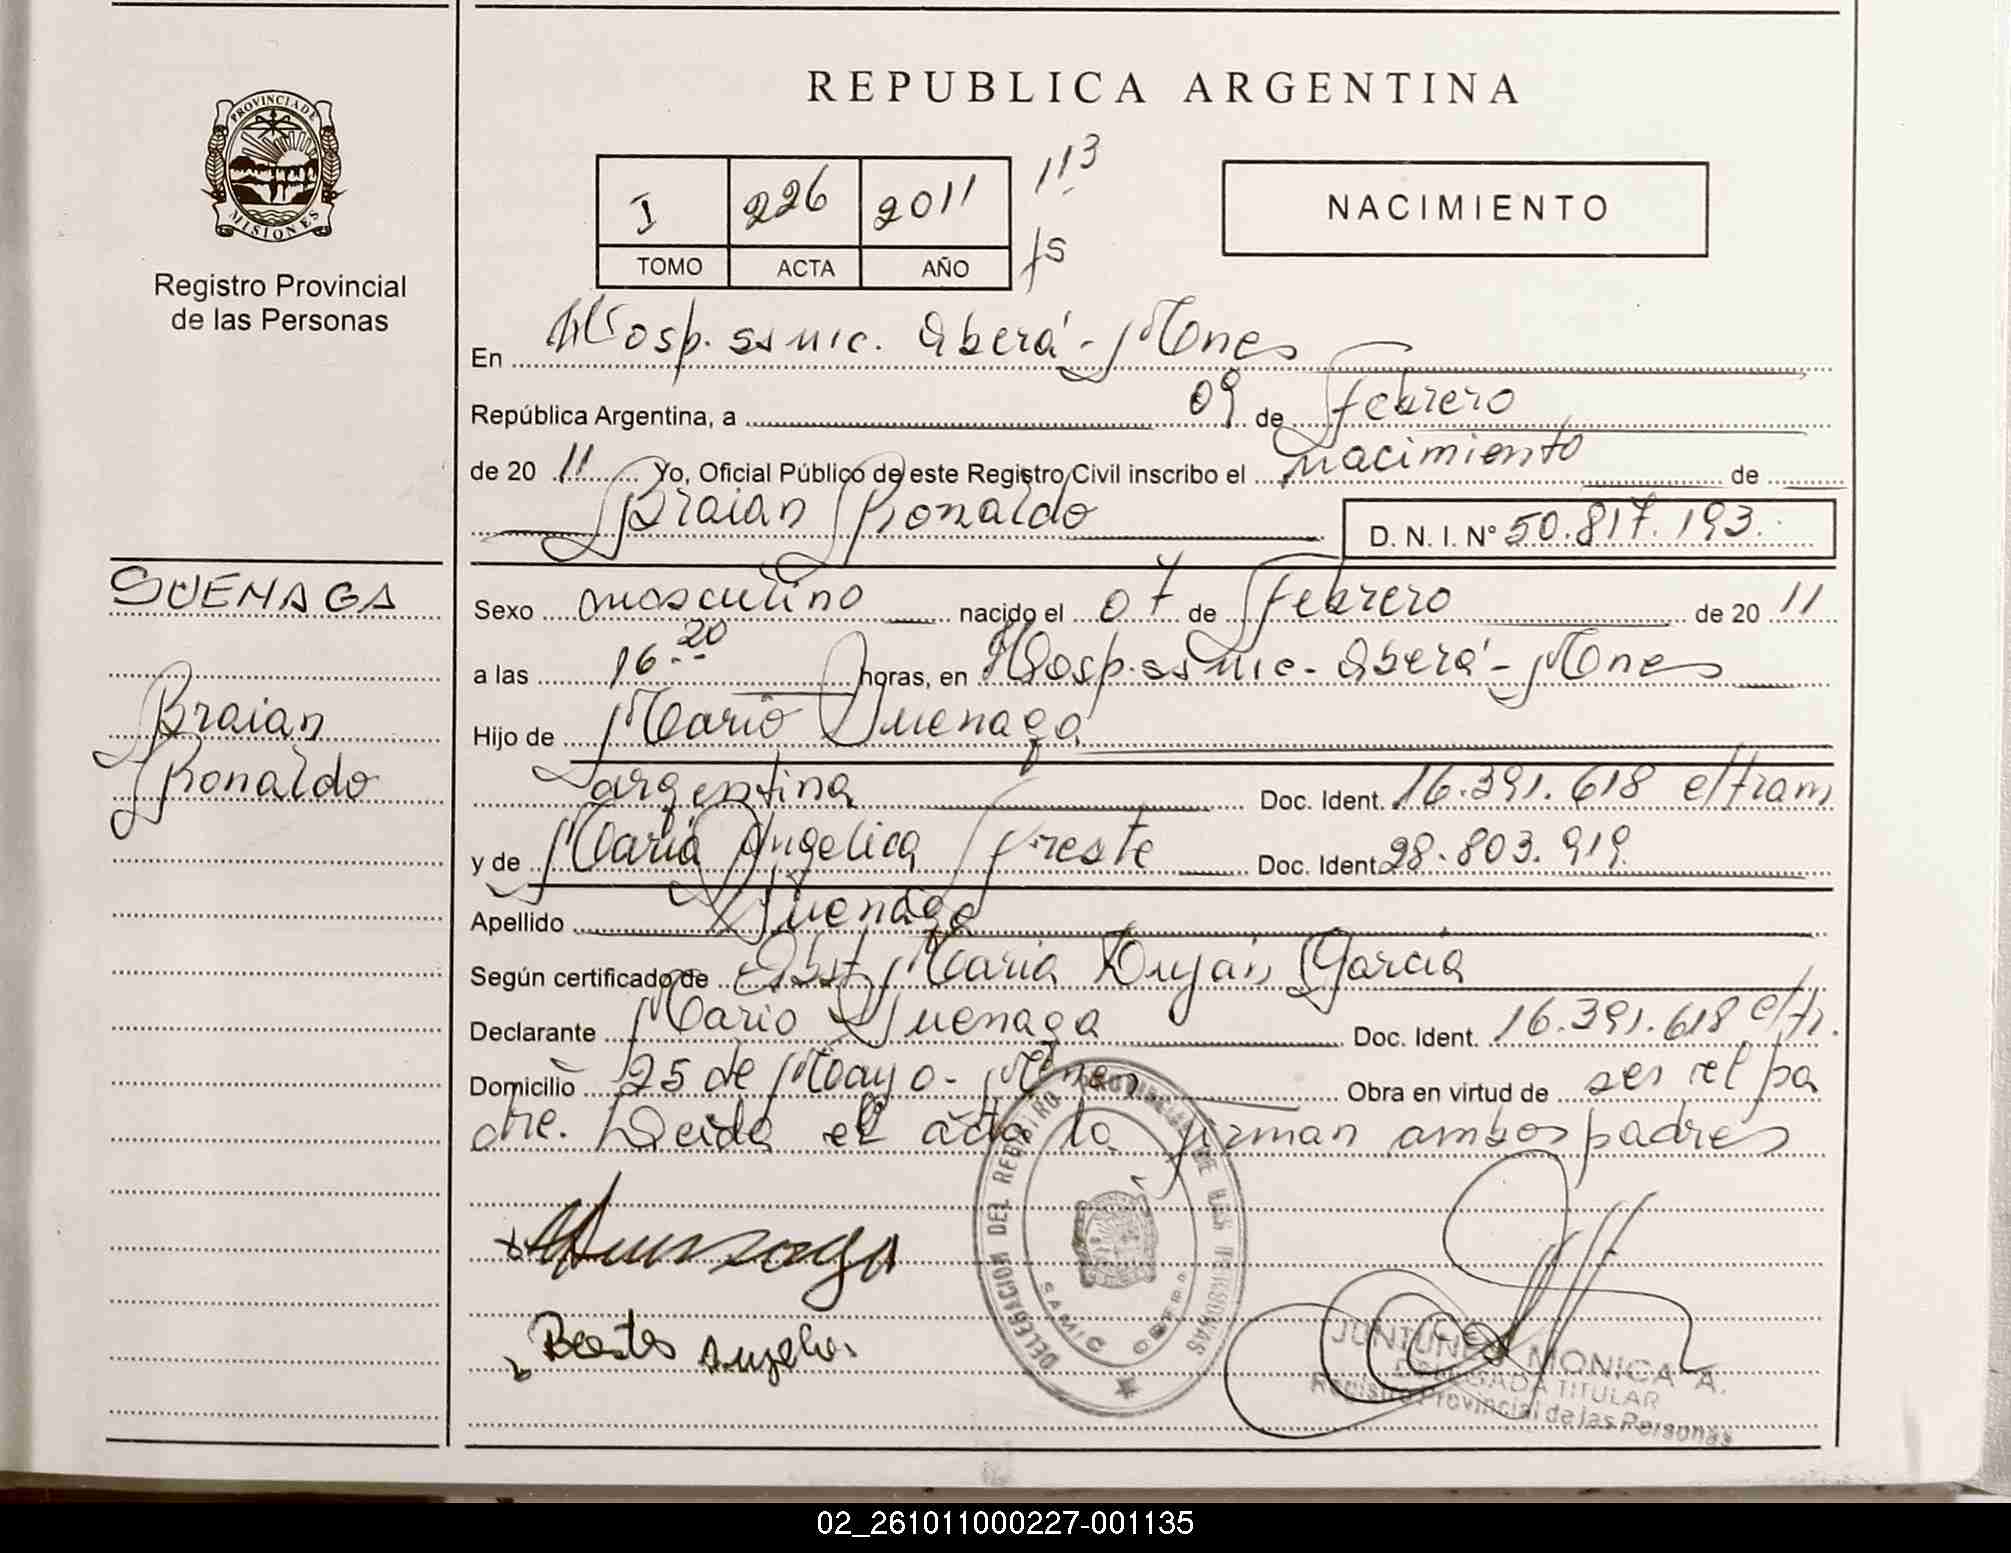 REPUBLICA ARGENTINA
PROVINCIA DE
MISIONES
Registro Provincial
de las Personas
I 226 2011 113
TOMO ACTA AÑO fs
NACIMIENTO
En Hosp. ssmic. Oberá - Mnes
República Argentina, a 09 de Febrero
de 20 11 Yo, Oficial Público de este Registro Civil inscribo el nacimiento de
Braian Ronaldo D. N. I. Nº 50.817.193.
SUENAGA
Braian
Ronaldo
Sexo masculino nacido el 07 de Febrero de 20 11
a las 16.20 horas, en Hosp. ssmic - Oberá - Mnes
Hijo de Mario Suenaga
argentina Doc. Ident. 16.391.618 e/tram
y de Maria Angelica Doc. Ident 28.803.919.
Apellido Suenaga
Según certificado de Obst Maria Luján Garcia
Declarante Mario Suenaga Doc. Ident. 16.391.618 e/tr.
Domicilio 25 de Mayo - Mnes Obra en virtud de ser el pa
dre. Leida el acta la firman ambos padres
DELEGACION DEL REGISTRO PROVINCIAL DE LAS PERSONAS
SAMIC OBERA
MONICA A.
DELEGADA TITULAR
Registro Provincial de las Personas
02_261011000227-001135